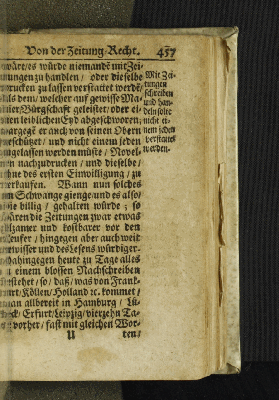 Von der Zeitung-Recht. 457
wärt/es würde niemandē mit Zei-
tungen zu handlen/ oder dieselbe
drucken zu lassen verstattet werdē/
als dem/ welcher auf gewisse Ma-
Bürgschafft geleistet/ oder ei-
nen leiblichen Eyd abgeschworen/
er auch von seinen Obern
geschützet/ und nicht einem jeden
zugelassen werden müste/ Novel-
len nachzudrucken/ und dieselbe/
ohne des ersten Einwilligung/ zu
verkaufen. Wann nun solches
im Schwange gienge/und es also/
wie billig/ gehalten würde; so
wären die Zeitungen zwar etwas
und kostbarer vor den
Keufer/ hingegen aber auch weit
gewisser und des Lesens würdiger:
dahingegen heute zu Tage alles
in einem blossen Nachschreiben
bestehet/ so/ daß/ was von Frank-
furt/Köllen/Holland ꝛc. kommet/
man allbereit in Hamburg/ Lü-
beck/ Erfurt/Leipzig/ vierzehn Ta-
ge vorher/ fast mit gleichen Wor-
U ten/
Mit Zei-
tungen
schreiben
und han-
deln solte
nicht ei-
nem jeden
verstattet
werden.